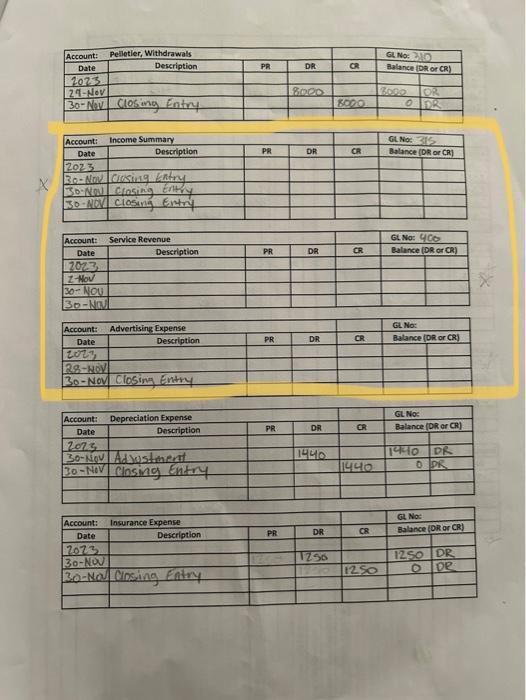 Account: Pelletier, Withdrawals GL No: 310
Date Description PR DR CR Balance (DR or CR)
2023
29-Nov 8000 8000 DR
30-Nov Closing Entry 8000 0 DR
Account: Income Summary GL No: 315
Date Description PR DR CR Balance (DR or CR)
2023
30-Nov Closing Entry
30-Nov Closing Entry
30-Nov Closing Entry
Account: Service Revenue GL No: 400
Date Description PR DR CR Balance (DR or CR)
2023
2-Nov
30-Nov
30-Nov
Account: Advertising Expense GL No:
Date Description PR DR CR Balance (DR or CR)
2023
28-Nov
30-Nov Closing Entry
Account: Depreciation Expense GL No:
Date Description PR DR CR Balance (DR or CR)
2023
30-Nov Adjustment 1440 1440 DR
30-Nov Closing Entry 1440 0 DR
Account: Insurance Expense GL No:
Date Description PR DR CR Balance (DR or CR)
2023
30-Nov 1250 1250 DR
30-Nov Closing Entry 1250 0 DR